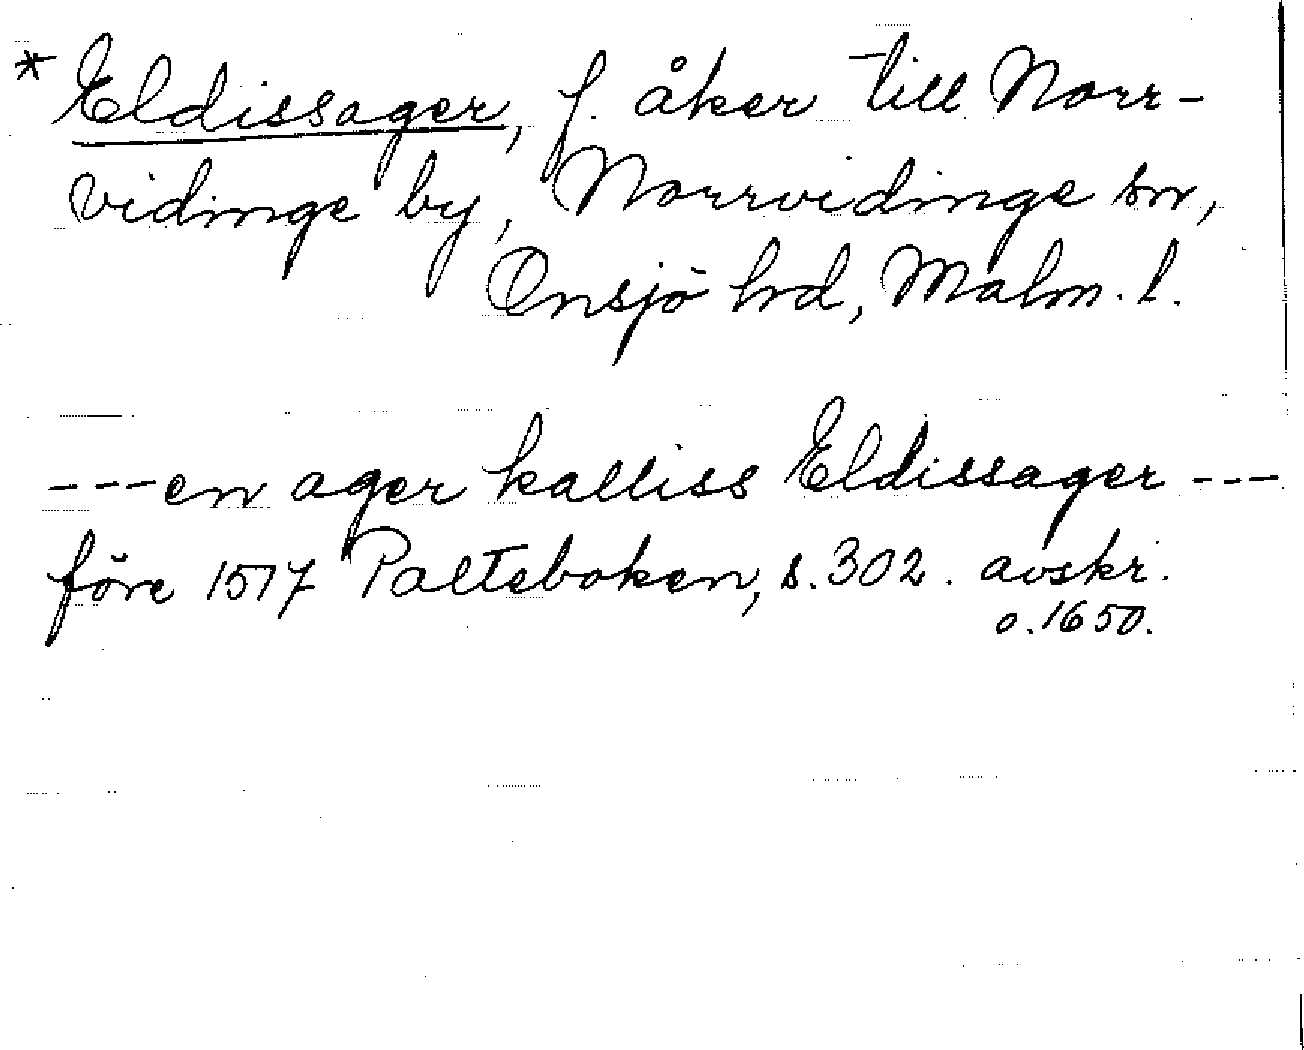 * Eldissager, f. åker till Norr-
vidinge by, Norrvidinge sn,
Onsjö hd, Malm. l.
---en ager kalliss Eldissager ---
före 1517 Palteboken, s. 302. avskr.
o. 1650.